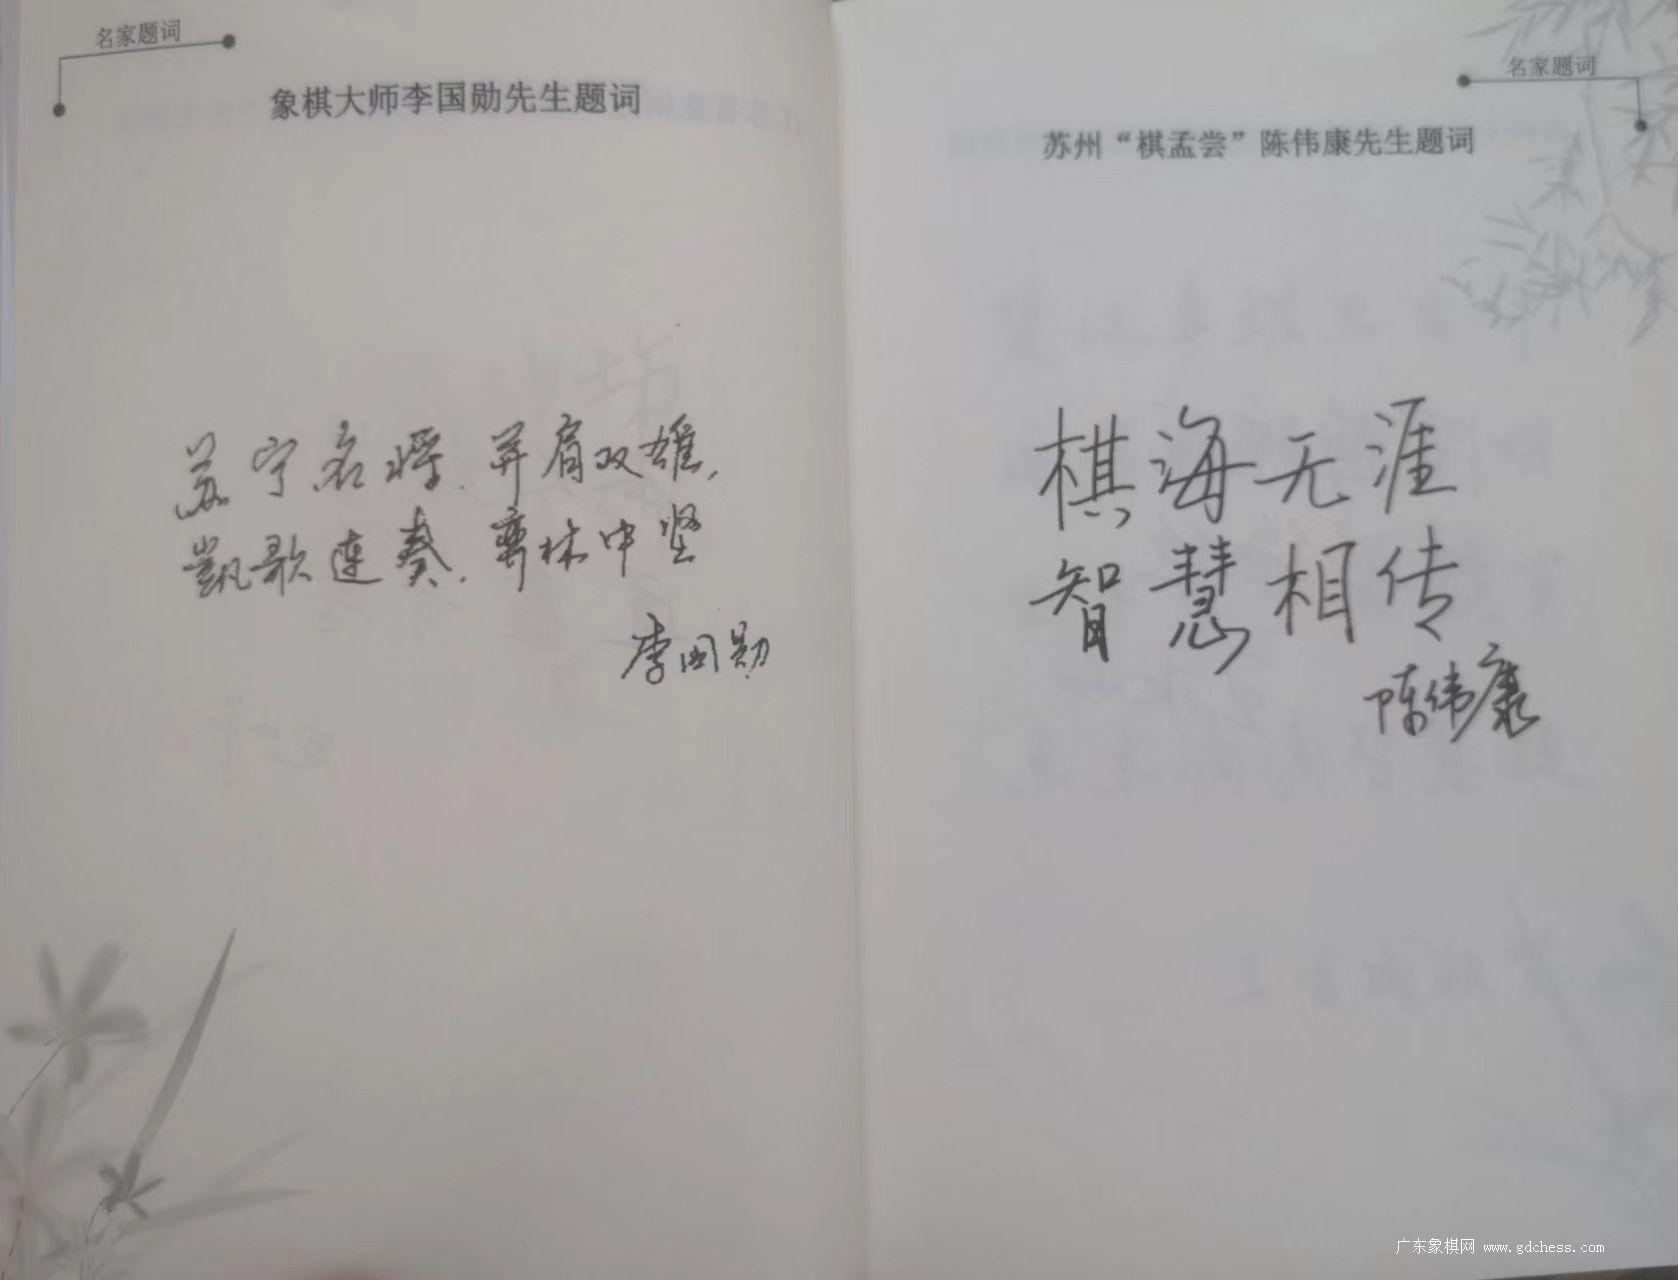 名家题词
象棋大师李国勋先生题词
苏宁名将.并肩双雄,
凯歌连奏.弈林中坚
李国勋
名家题词
苏州“棋孟尝”陈伟康先生题词
棋海无涯
智慧相传
陈伟康
广东象棋网 www.gdchess.com